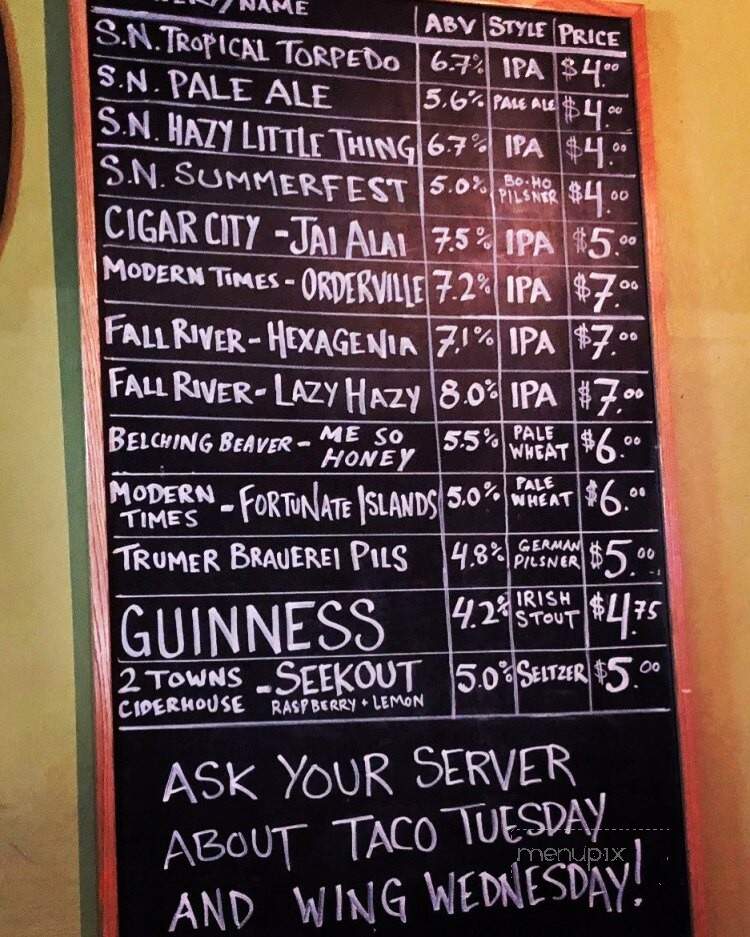 NAME ABV STYLE PRICE
S.N. TROPICAL TORPEDO 6.7% IPA $4.00
S.N. PALE ALE 5.6% PALE ALE $4.00
S.N. HAZY LITTLE THING 6.7% IPA $4.00
S.N. SUMMERFEST 5.0% BO-HO PILSNER $4.00
CIGAR CITY - JAI ALAI 7.5% IPA $5.00
MODERN TIMES - ORDERVILLE 7.2% IPA $7.00
FALL RIVER - HEXAGENIA 7.1% IPA $7.00
FALL RIVER - LAZY HAZY 8.0% IPA $7.00
BELCHING BEAVER - ME SO HONEY 5.5% PALE WHEAT $6.00
MODERN TIMES - FORTUNATE ISLANDS 5.0% PALE WHEAT $6.00
TRUMER BRAUEREI PILS 4.8% GERMAN PILSNER $5.00
GUINNESS 4.2% IRISH STOUT $4.75
2 TOWNS CIDERHOUSE - SEEKOUT RASPBERRY + LEMON 5.0% SELTZER $5.00
ASK YOUR SERVER
ABOUT TACO TUESDAY
menupix
AND WING WEDNESDAY!